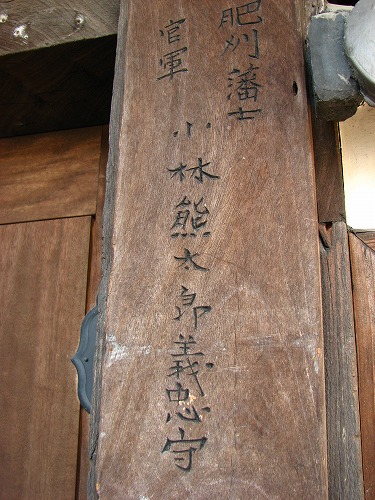 肥刈藩士
官軍
小林熊太郎義忠守